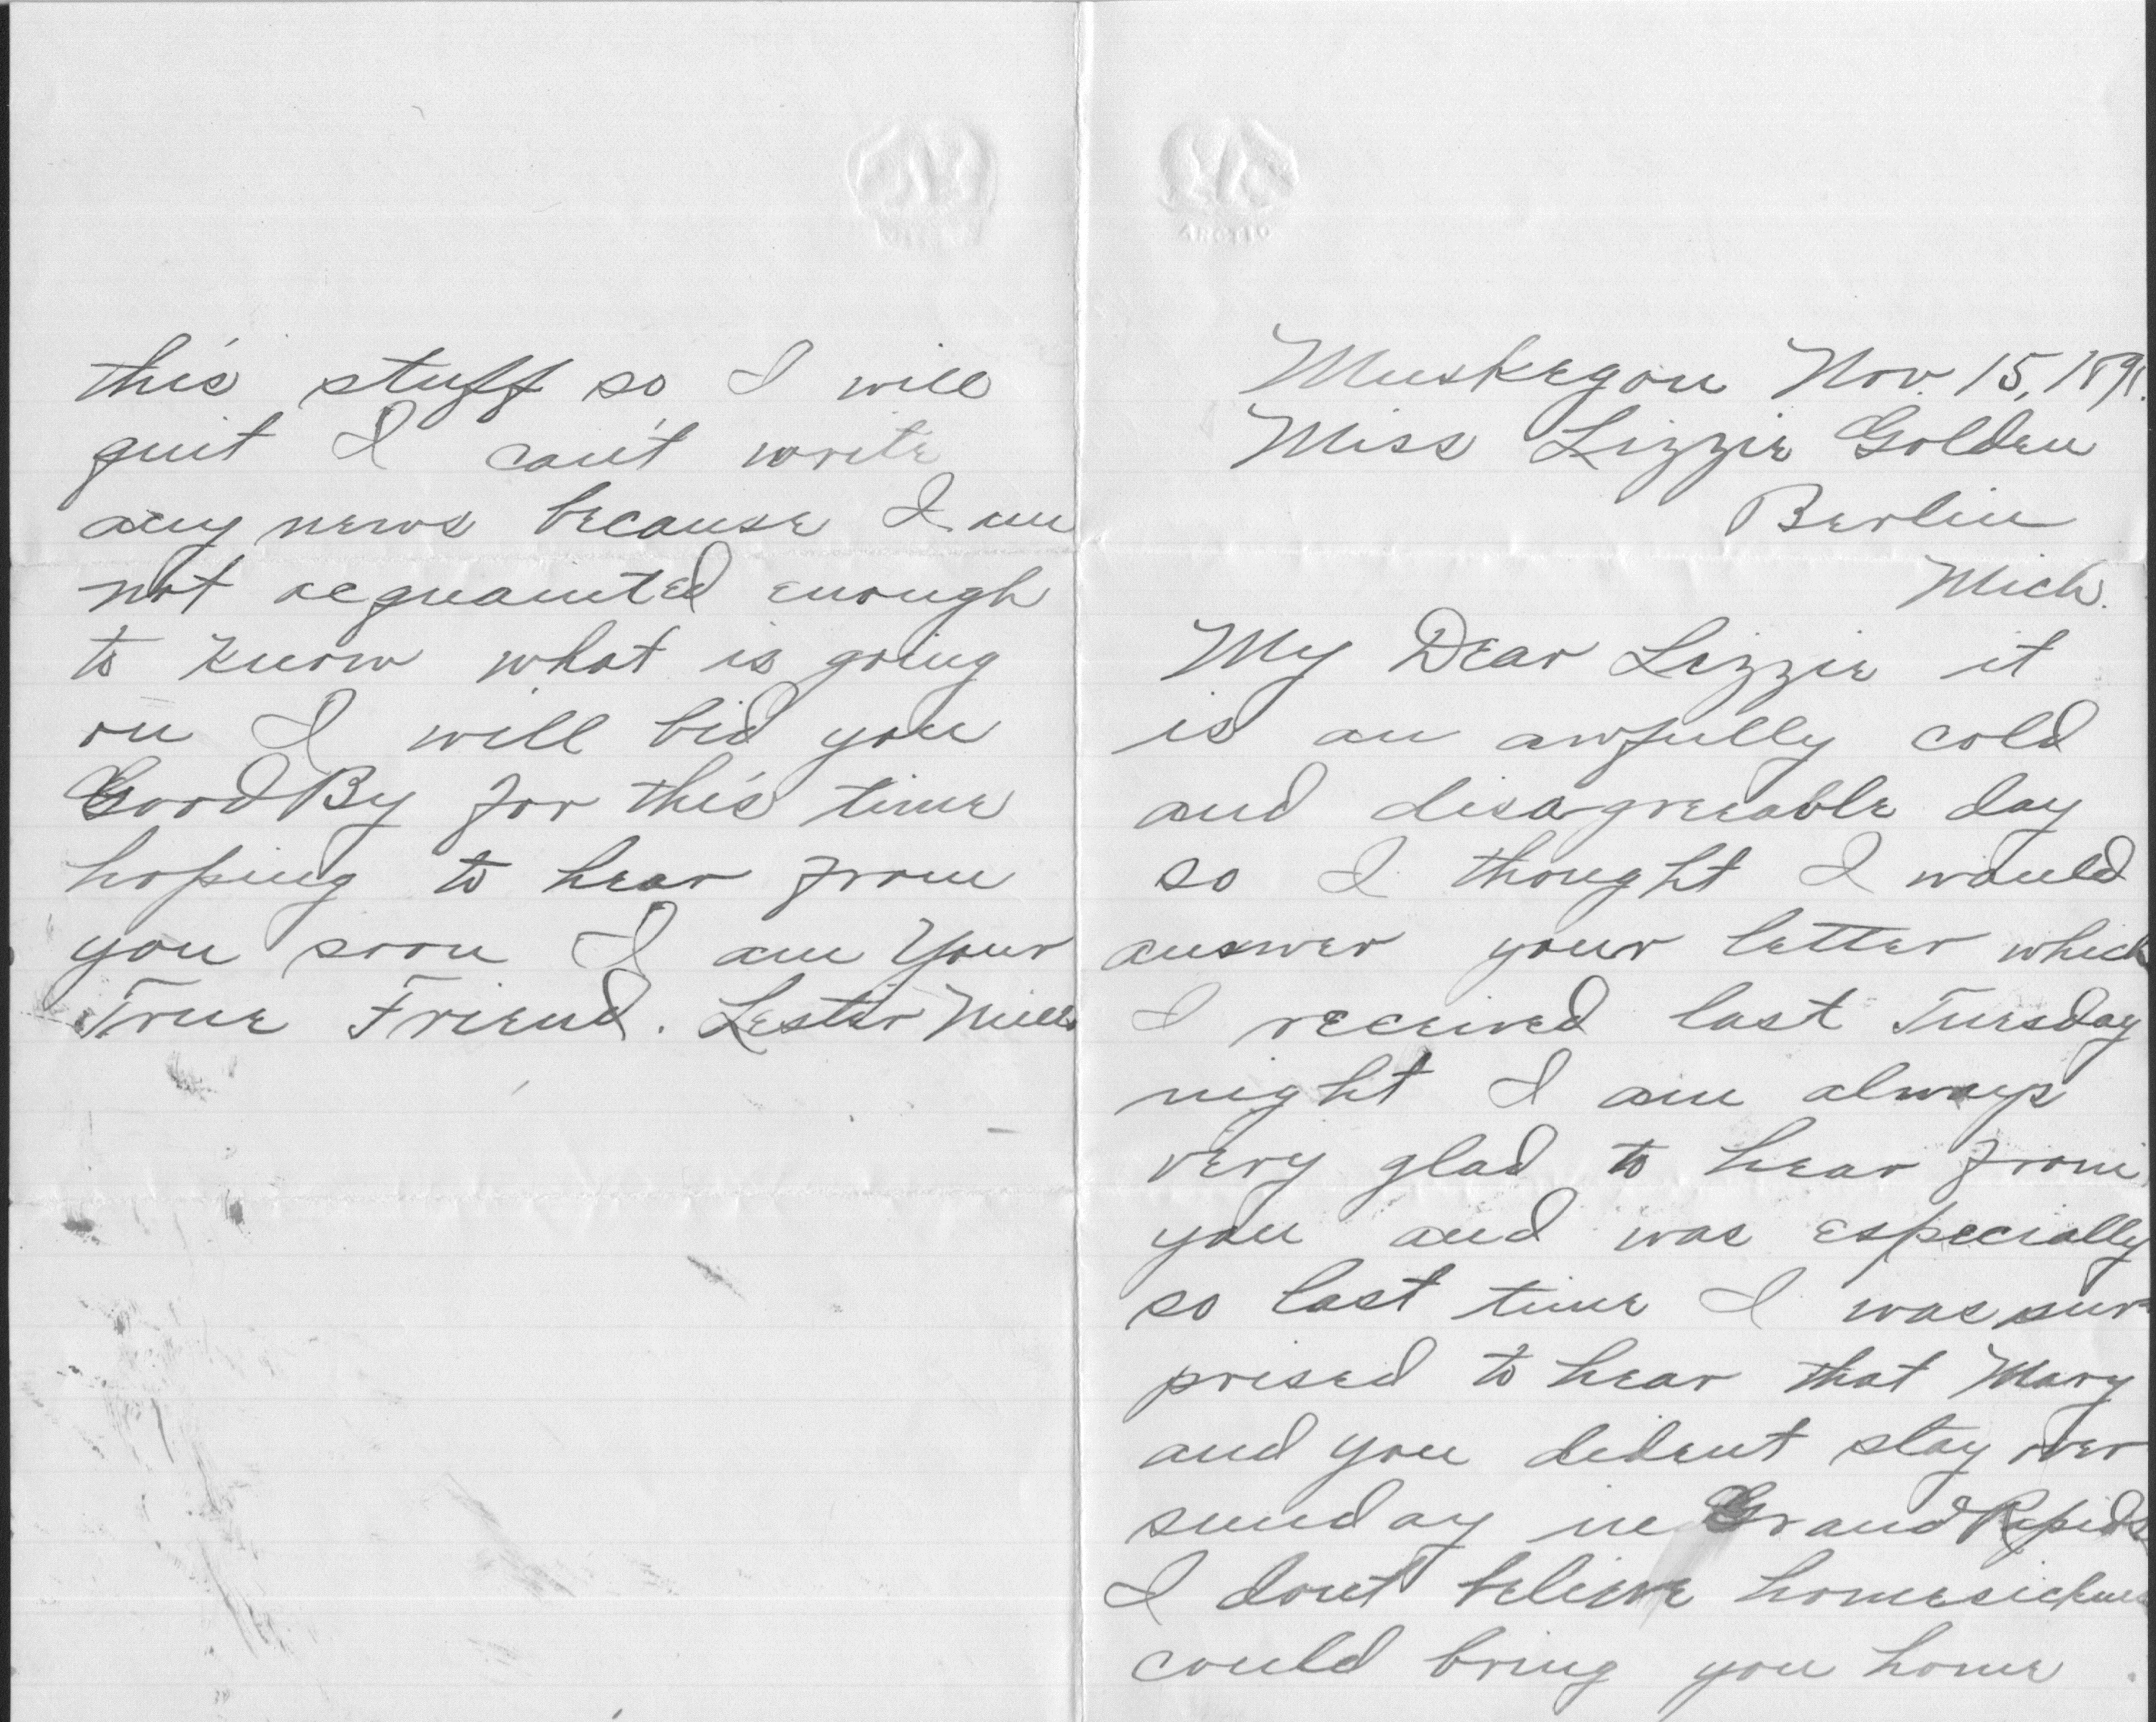 this stuff so I will
quit I can't write
any news because I am
not acquainted enough
to know what is going
on I will bid you
Good By for this time
hoping to hear from
you soon I am Your
True Friend. Lester Mills
ARCTIC
Muskegon Nov. 15, 1891.
Miss Lizzie Golden
Berlin
Mich.
My Dear Lizzie it
is an awfully cold
and disagreeable day
so I thought I would
answer your letter which
I received last Tuesday
night I am always
very glad to hear from
you and was especially
so last time I was sur
prised to hear that Mary
and you dident stay over
sunday in Grand Rapids
I dont believe homesickness
could bring you home